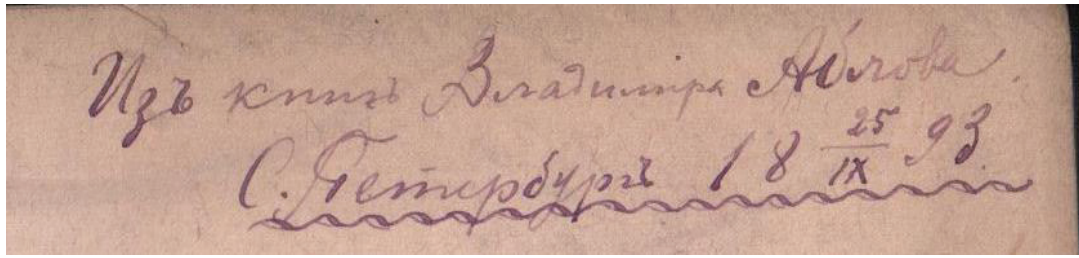 Изъ книгъ Владимiра Аблова.
С. Петербургъ 18 25/IX 93.